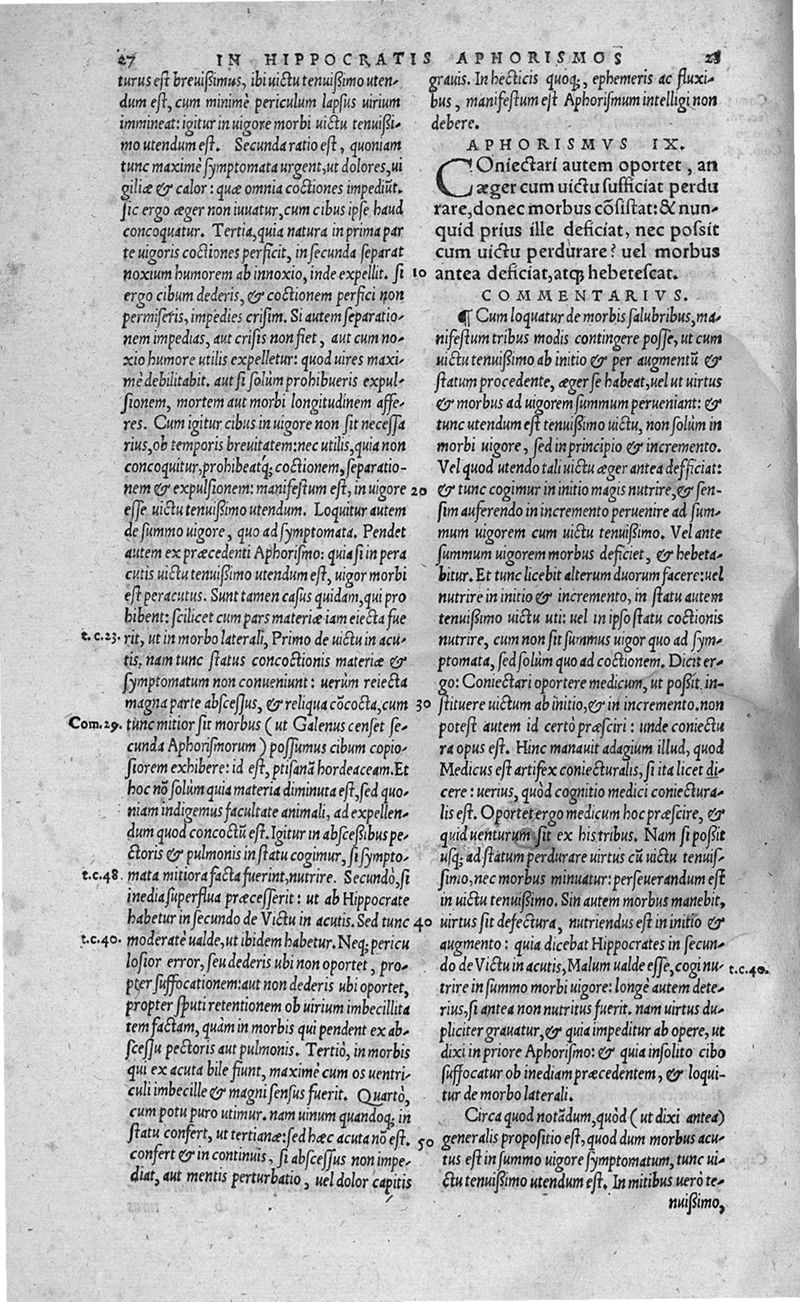 27 IN HIPPOCRATIS APHORISMOS 28
turus est breuißimus, ibi uictu tenuißimo uten-
dum est, cum minimè periculum lapsus uirium
immineat: igitur in uigore morbi uictu tenuißi-
mo utendum est. Secunda ratio est, quoniam
tunc maximè symptomata urgent, ut dolores, ui
giliæ & calor: quæ omnia coctiones impediũt.
sic ergo æger non iuuatur, cum cibus ipse haud
concoquatur. Tertia, quia natura in prima par
te uigoris coctiones perficit, in secunda separat
noxium humorem ab innoxio, inde expellit. si 10
ergo cibum dederis, & coctionem perfici non
permiseris, impedies crisim. Si autem separatio-
nem impedias, aut crisis non fiet, aut cum no-
xio humore utilis expelletur: quod uires maxi-
mè debilitabit. aut si solùm prohibueris expul-
sionem, mortem aut morbi longitudinem affe-
res. Cum igitur cibus in uigore non sit necessa
rius, ob temporis breuitatem: nec utilis, quia non
concoquitur, prohibeatq; coctionem, separatio-
nem & expulsionem: manifestum est, in uigore 20
esse uictu tenuißimo utendum. Loquitur autem
de summo uigore, quo ad symptomata. Pendet
autem ex præcedenti Aphorismo: quia si in pera
cutis uictu tenuißimo utendum est, uigor morbi
est peracutus. Sunt tamen casus quidam, qui pro
hibent: scilicet cum pars materiæ iam eiecta fue
t.c.23. rit, ut in morbo laterali, Primo de uictu in acu-
tis, nam tunc status concoctionis materiæ &
symptomatum non conueniunt: uerùm reiecta
magna parte abscessus, & reliqua cõcocta, cum 30
Com.29. tunc mitior sit morbus (ut Galenus censet se-
cunda Aphorismorum) possumus cibum copio-
siorem exhibere: id est, ptisanã hordeaceam. Et
hoc nõ solùm quia materia diminuta est, sed quo-
niam indigemus facultate animali, ad expellen-
dum quod concoctũ est. Igitur in abscessibus pe-
ctoris & pulmonis in statu cogimur, si sympto-
t.c.48. mata mitiora facta fuerint, nutrire. Secundò, si
inedia superflua præcesserit: ut ab Hippocrate
habetur in secundo de Victu in acutis. Sed tunc 40
t.c.40. moderatè ualde, ut ibidem habetur. Neq; pericu
losior error, seu dederis ubi non oportet, pro-
pter suffocationem: aut non dederis ubi oportet,
propter sputi retentionem ob uirium imbecillita
tem factam, quàm in morbis qui pendent ex ab-
scessu pectoris aut pulmonis. Tertiò, in morbis
qui ex acuta bile fiunt, maximè cum os uentri-
culi imbecille & magni sensus fuerit. Quartò,
cum potu puro utimur. nam uinum quandoq; in
statu confert, ut tertianæ: sed hæc acuta nõ est. 50
confert & in continuis, si abscessus non impe-
diat, aut mentis perturbatio, uel dolor capitis
grauis. In hecticis quoq;, ephemeris ac fluxi-
bus, manifestum est Aphorismum intelligi non
debere.
APHORISMVS IX.
COniectari autem oportet, an
æger cum uictu sufficiat perdu
rare, donec morbus cõsistat: & nun-
quid prius ille deficiat, nec possit
cum uictu perdurare? uel morbus
antea deficiat, atq; hebetescat.
COMMENTARIVS.
¶ Cum loquatur de morbis salubribus, ma-
nifestum tribus modis contingere posse, ut cum
uictu tenuißimo ab initio & per augmentũ &
statum procedente, æger se habeat, uel ut uirtus
& morbus ad uigorem summum perueniant: &
tunc utendum est tenuißimo uictu, non solùm in
morbi uigore, sed in principio & incremento.
Vel quod utendo tali uictu æger antea defficiat:
& tunc cogimur in initio magis nutrire, & sen-
sim auferendo in incremento peruenire ad sum-
mum uigorem cum uictu tenuißimo. Vel ante
summum uigorem morbus deficiet, & hebeta-
bitur. Et tunc licebit alterum duorum facere: uel
nutrire in initio & incremento, in statu autem
tenuißimo uictu uti: uel in ipso statu coctionis
nutrire, cum non sit summus uigor quo ad sym-
ptomata, sed solùm quo ad coctionem. Dicit er-
go: Coniectari oportere medicum, ut poßit, in-
stituere uictum ab initio, & in incremento. non
potest autem id certò præsciri: unde coniectu
ra opus est. Hinc manauit adagium illud, quod
Medicus est artifex coniecturalis, si ita licet di-
cere: uerius, quòd cognitio medici coniectura-
lis est. Oportet ergo medicum hoc præscire, &
quid uenturum sit ex his tribus. Nam si poßit
usq; ad statum perdurare uirtus cũ uictu tenuis-
simo, nec morbus minuatur: perseuerandum est
in uictu tenuißimo. Sin autem morbus manebit,
uirtus sit defectura, nutriendus est in initio &
augmento: quia dicebat Hippocrates in secun-
do de Victu in acutis, Malum ualde esse, cogi nu- t.c.40.
trire in summo morbi uigore: longè autem dete-
rius, si antea non nutritus fuerit. nam uirtus du-
pliciter grauatur, & quia impeditur ab opere, ut
dixi in priore Aphorismo: & quia insolito cibo
suffocatur ob inediam præcedentem, & loqui-
tur de morbo laterali.
Circa quod notãdum, quòd (ut dixi antea)
generalis propositio est, quod dum morbus acu-
tus est in summo uigore symptomatum, tunc ui-
ctu tenuißimo utendum est. In mitibus uerò te-
nuißimo,